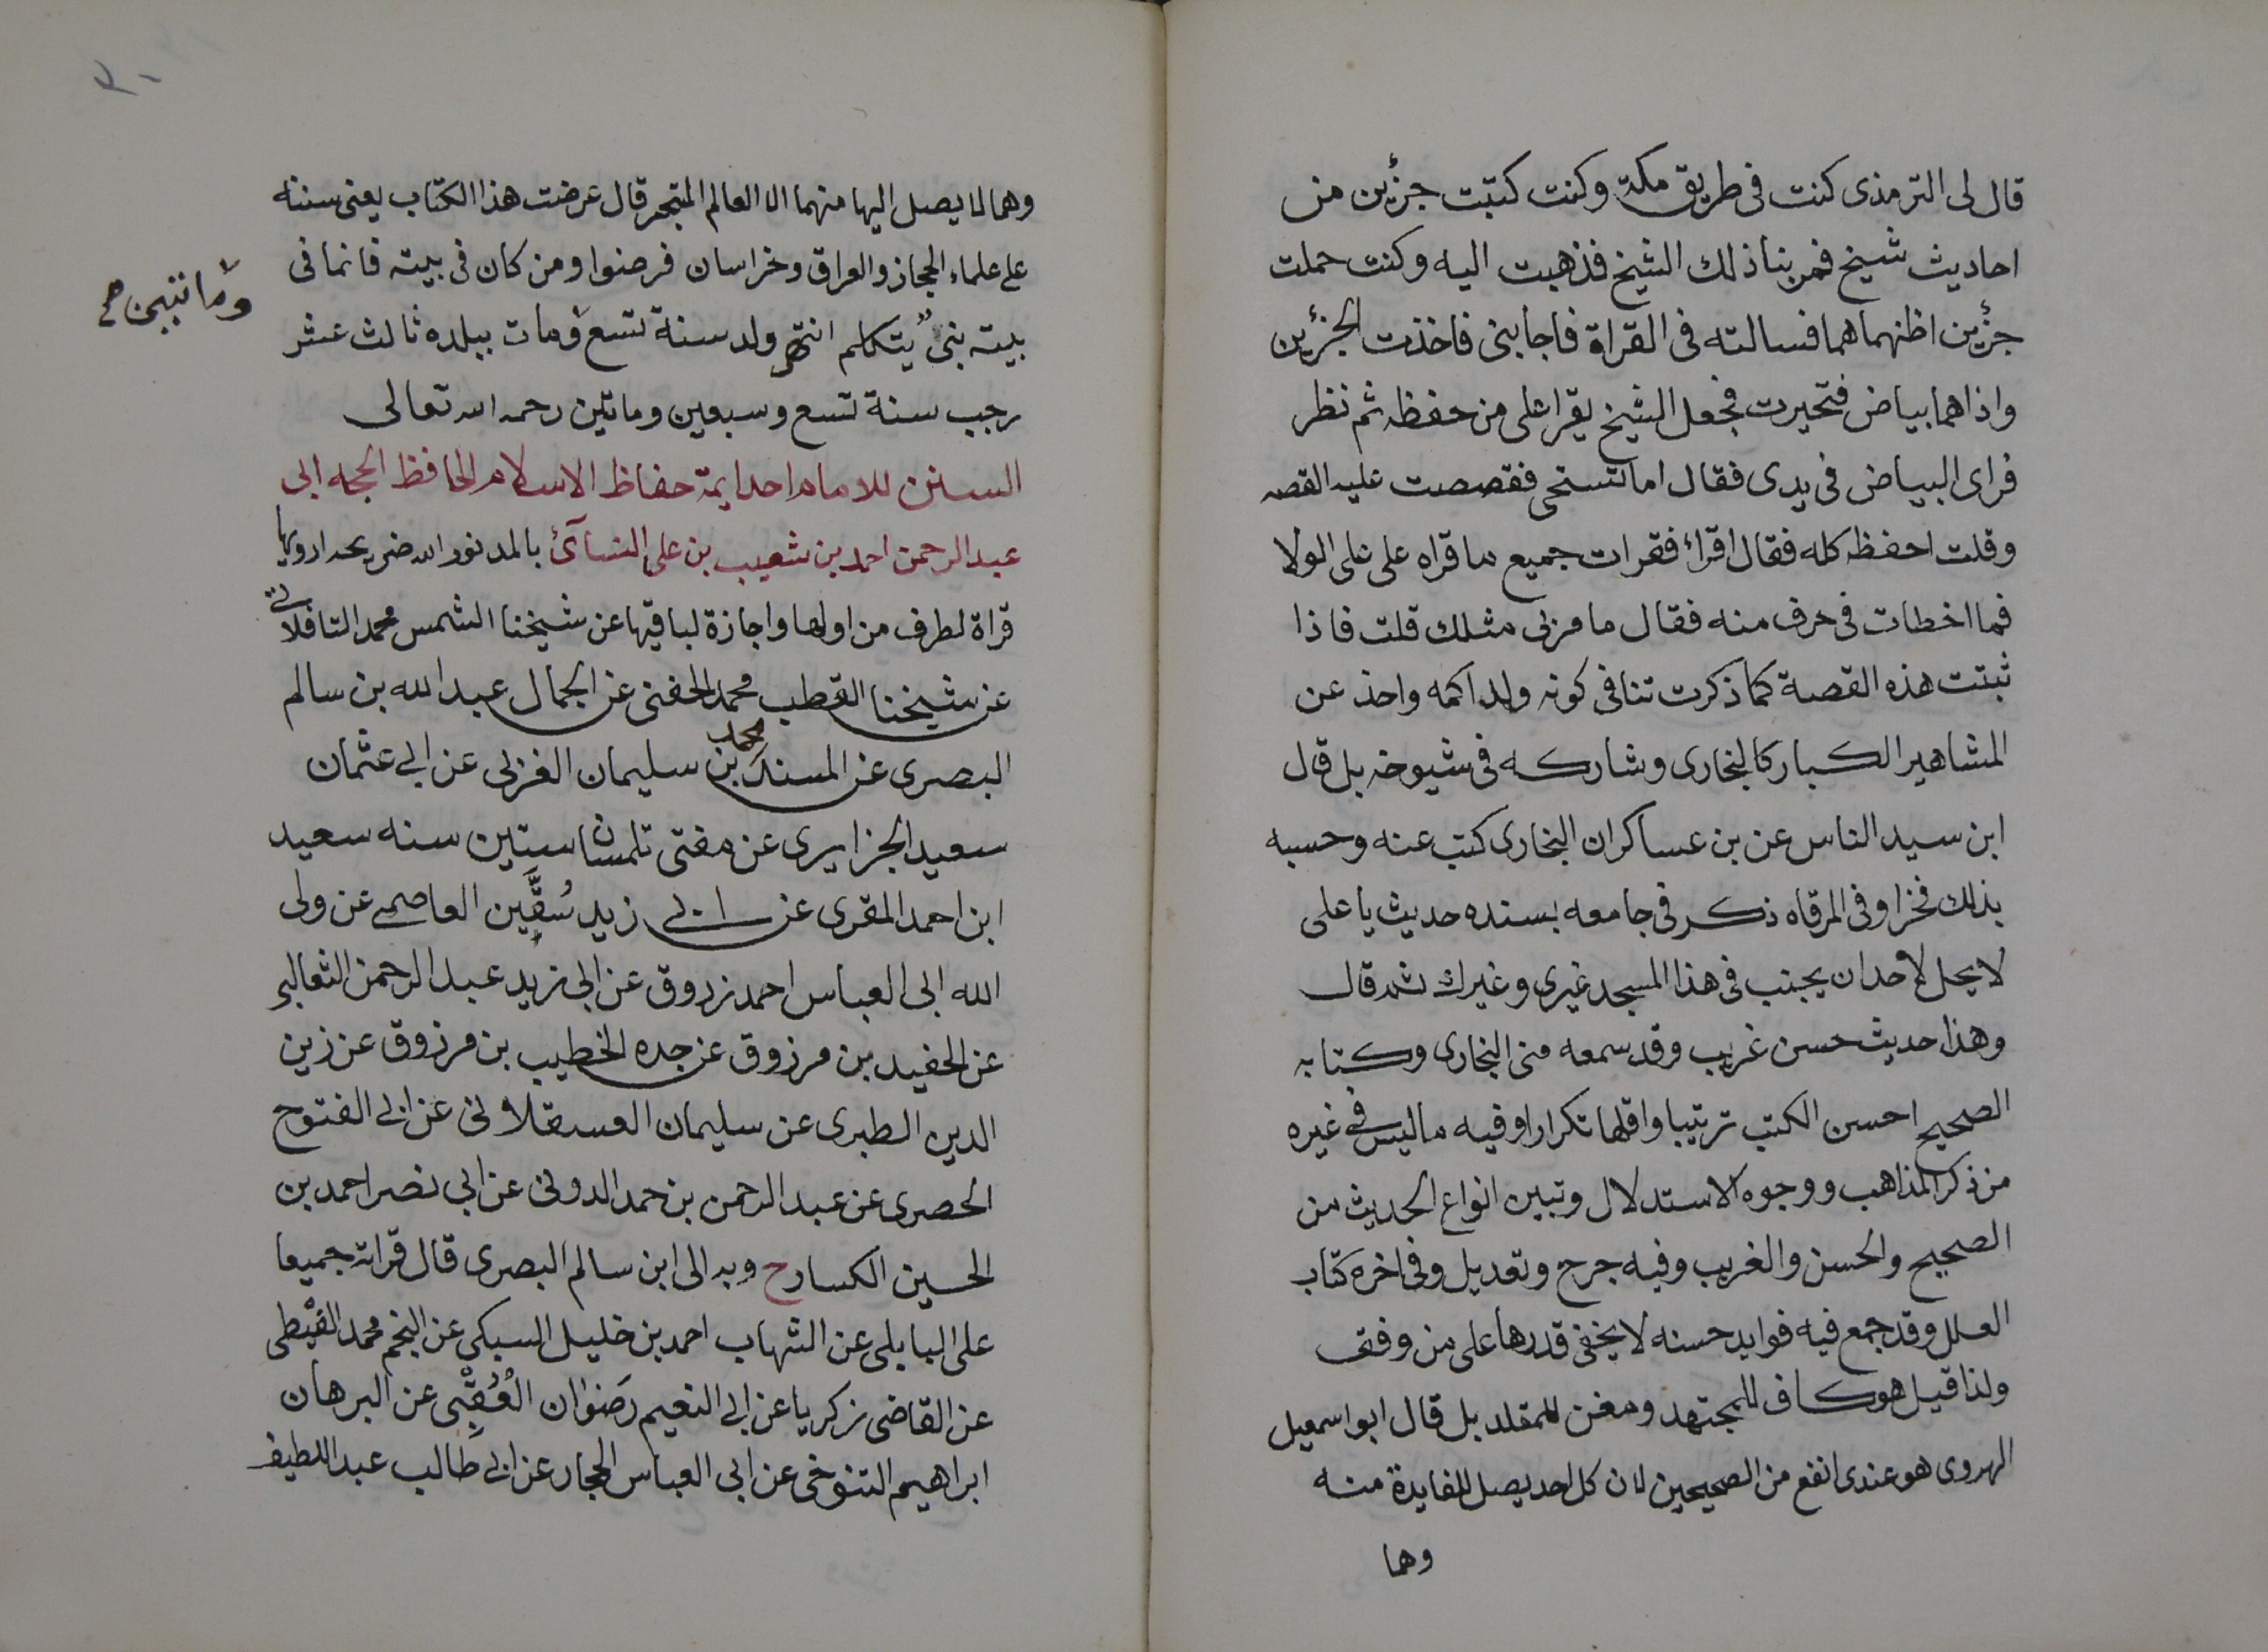 قال لى الترمذى كنت فى طريق مكة وكنت كتبت جزئين من
احاديث شيخ فمر بنا ذلك الشيخ فذهبت اليه وكنت حملت
جزئين اظنهما هما فسالته فى القراة فاجابنى فاخذت الجزئين
واذا هما بياض فتحيرت فجعل الشيخ يقرا على من حفظه ثم نظر
فراى البياض فى يدى فقال اما تستحى فقصصت عليه القصه
وقلت احفظه كله فقال اقراء فقرات جميع ما قراه على على الولا
فما اخطات فى حرف منه فقال ما مر بى مثلك قلت فاذا
ثبتت هذه القصة كما ذكرت تنافى كونه ولد اكمه واخذ عن
المشاهير الكبار كالبخارى وشاركه فى شيوخه بل قال
ابن سيد الناس عن بن عساكر ان البخارى كتب عنه وحسبه
بذلك فخرا وفى المرقاه ذكر فى جامعه بسنده حديث يا على
لا يحل لاحد ان يجنب فى هذا المسجد غيرى وغيرك ثم قال
وهذا حديث حسن غريب وقد سمعه منى البخارى وكتابه
الصحيح احسن الكتب ترتيبا واقلها تكرارا وفيه ما ليس فى غيره
من ذكر المذاهب ووجوه الاستدلال وتبين انواع الحديث من
الصحيح والحسن والغريب وفيه جرح وتعديل وفى اخره كتاب
العلل وقد جمع فيه فوايد حسنه لا يخفى قدرها على من وقف
ولذا قيل هو كاف للمجتهد ومغن للمقلد بل قال ابو اسمعيل
الهروى هو عندى انفع من الصحيحين لان كل احد يصل للفايدة منه
وهما
وهما لا يصل اليها منهما الا العالم المتبحر قال عرضت هذا الكتاب يعنى سننه
على علماء الحجاز والعراق وخراسان فرضوا ومن كان فى بيته فانما فى
بيته نبى يتكلم انتهى ولد سنة تسع ومات ببلده ثالث عشر
وماتين صح
رجب سنة تسع وسبعين وماتين رحمه الله تعالى
السنن للامام احد ايمة حفاظ الاسلام الحافظ الحجه ابى
عبد الرحمن احمد بن شعيب بن على النسآئ بالمد نور الله ضريحه ارويها
قراة لطرف من اولها واجازة لباقيها عن شيخنا الشمس محمد التافلاتى
عن شيخنا القطب محمد الحفنى عن الجمال عبد الله بن سالم
البصرى عن المسند محمد بن سليمان المغربى عن ابى عثمان
سعيد الجزايرى عن مفتى تلمسان ستين سنه سعيد
ابن احمد المقرى عن ابى زيد سُقَّين العاصمى عن ولى
الله ابى العباس احمد زروق عن ابى زيد عبد الرحمن الثعالبى
عن الحفيد بن مرزوق عن جده الخطيب بن مرزوق عن زين
الدين الطبرى عن سليمان العسقلانى عن ابى الفتوح
الحصرى عن عبد الرحمن بن حمد الدونى عن ابى نصر احمد بن
الحسين الكسار ح وبه الى ابن سالم البصرى قال قراته جميعا
على البابلى عن الشهاب احمد بن خليل السبكى عن النجم محمد الغيطى
عن القاضى زكريا عن ابى النعيم رَضوان العُقبى عن البرهان
ابراهيم التنوخى عن ابى العباس الحجار عن ابى طالب عبد اللطيف